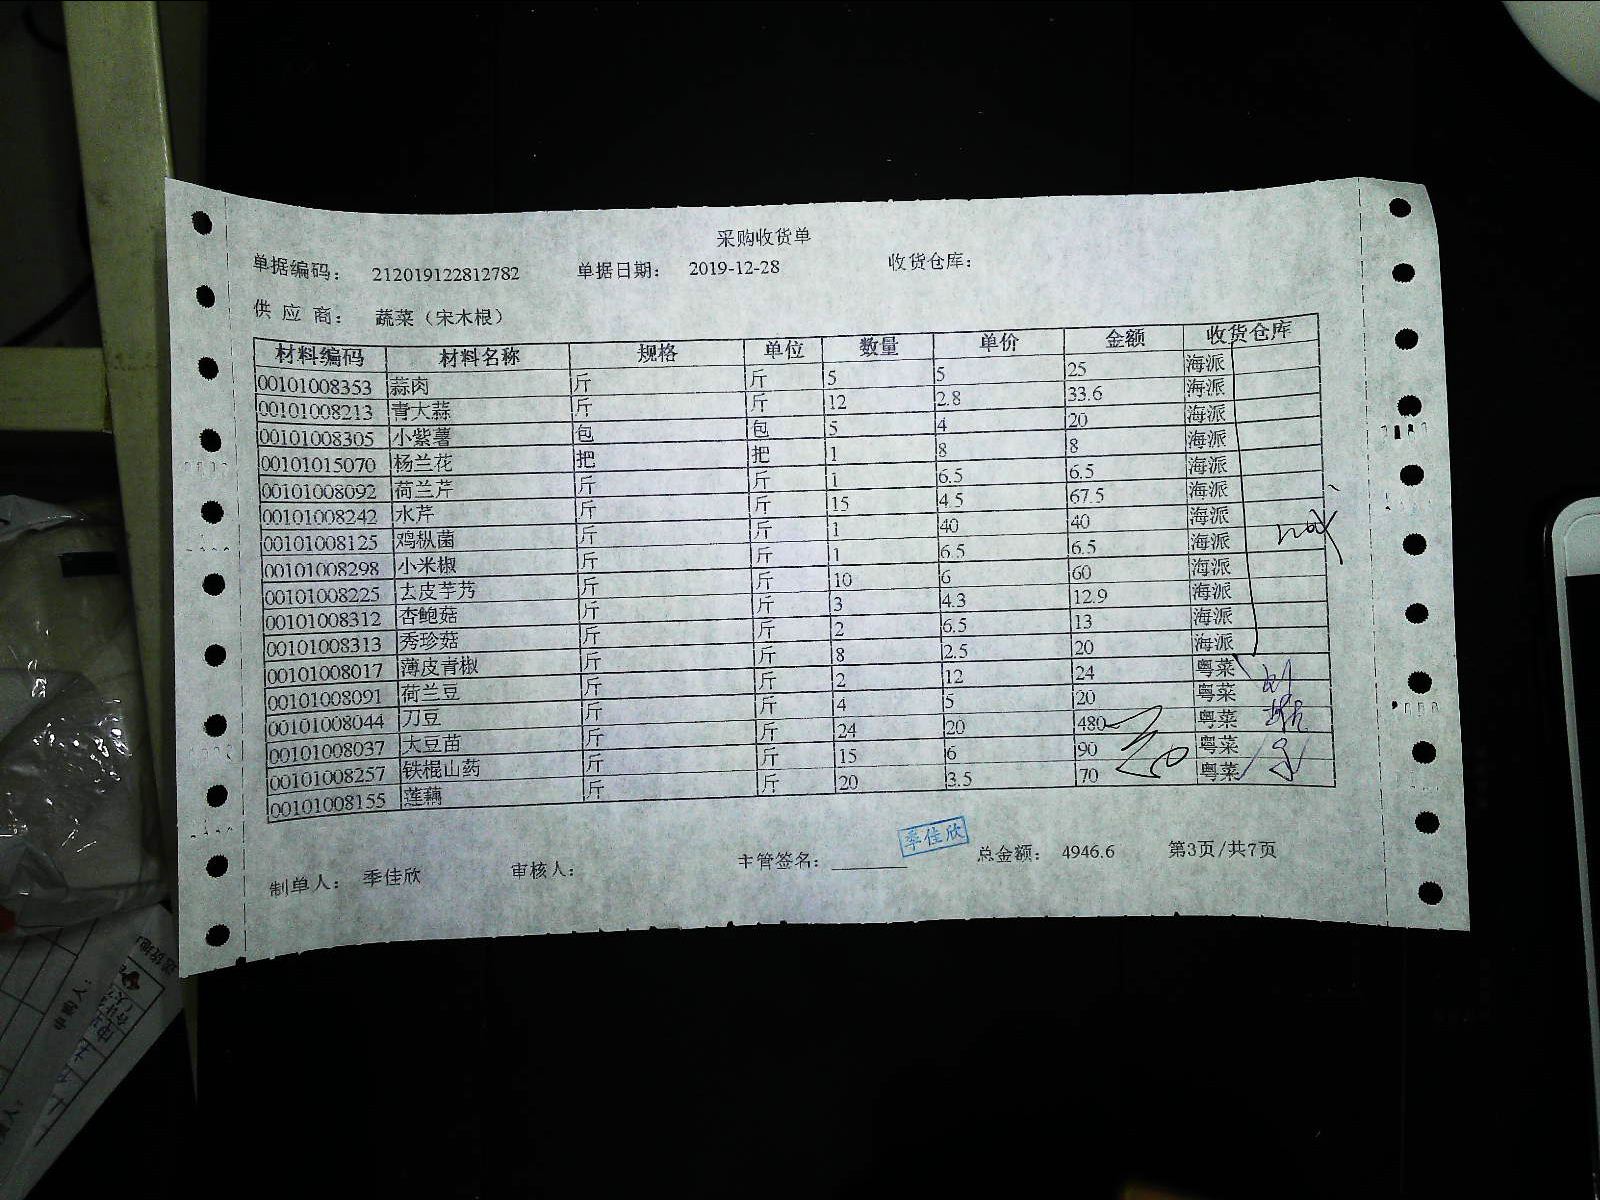 采购收货单
单据编码： 212019122812782 单据日期： 2019-12-28 收货仓库：
供 应 商： 蔬菜（宋木根）
材料编码 材料名称 规格 单位 数量 单价 金额 收货仓库
00101008353 蒜肉 斤 斤 5 5 25 海派
00101008213 青大蒜 斤 斤 12 2.8 33.6 海派
00101008305 小紫薯 包 包 5 4 20 海派
00101015070 杨兰花 把 把 1 8 8 海派
00101008092 荷兰芹 斤 斤 1 6.5 6.5 海派
00101008242 水芹 斤 斤 15 4.5 67.5 海派
00101008125 鸡枞菌 斤 斤 1 40 40 海派
00101008298 小米椒 斤 斤 1 6.5 6.5 海派
00101008225 去皮芋艿 斤 斤 10 6 60 海派
00101008312 杏鲍菇 斤 斤 3 4.3 12.9 海派
00101008313 秀珍菇 斤 斤 2 6.5 13 海派
00101008017 薄皮青椒 斤 斤 8 2.5 20 海派
00101008091 荷兰豆 斤 斤 2 12 24 粤菜
00101008044 刀豆 斤 斤 4 5 20 粤菜
00101008037 大豆苗 斤 斤 24 20 480 粤菜
00101008257 铁棍山药 斤 斤 15 6 90 粤菜
00101008155 莲藕 斤 斤 20 3.5 70 粤菜
制单人： 季佳欣 审核人： 主管签名： 季佳欣 总金额： 4946.6 第3页/共7页